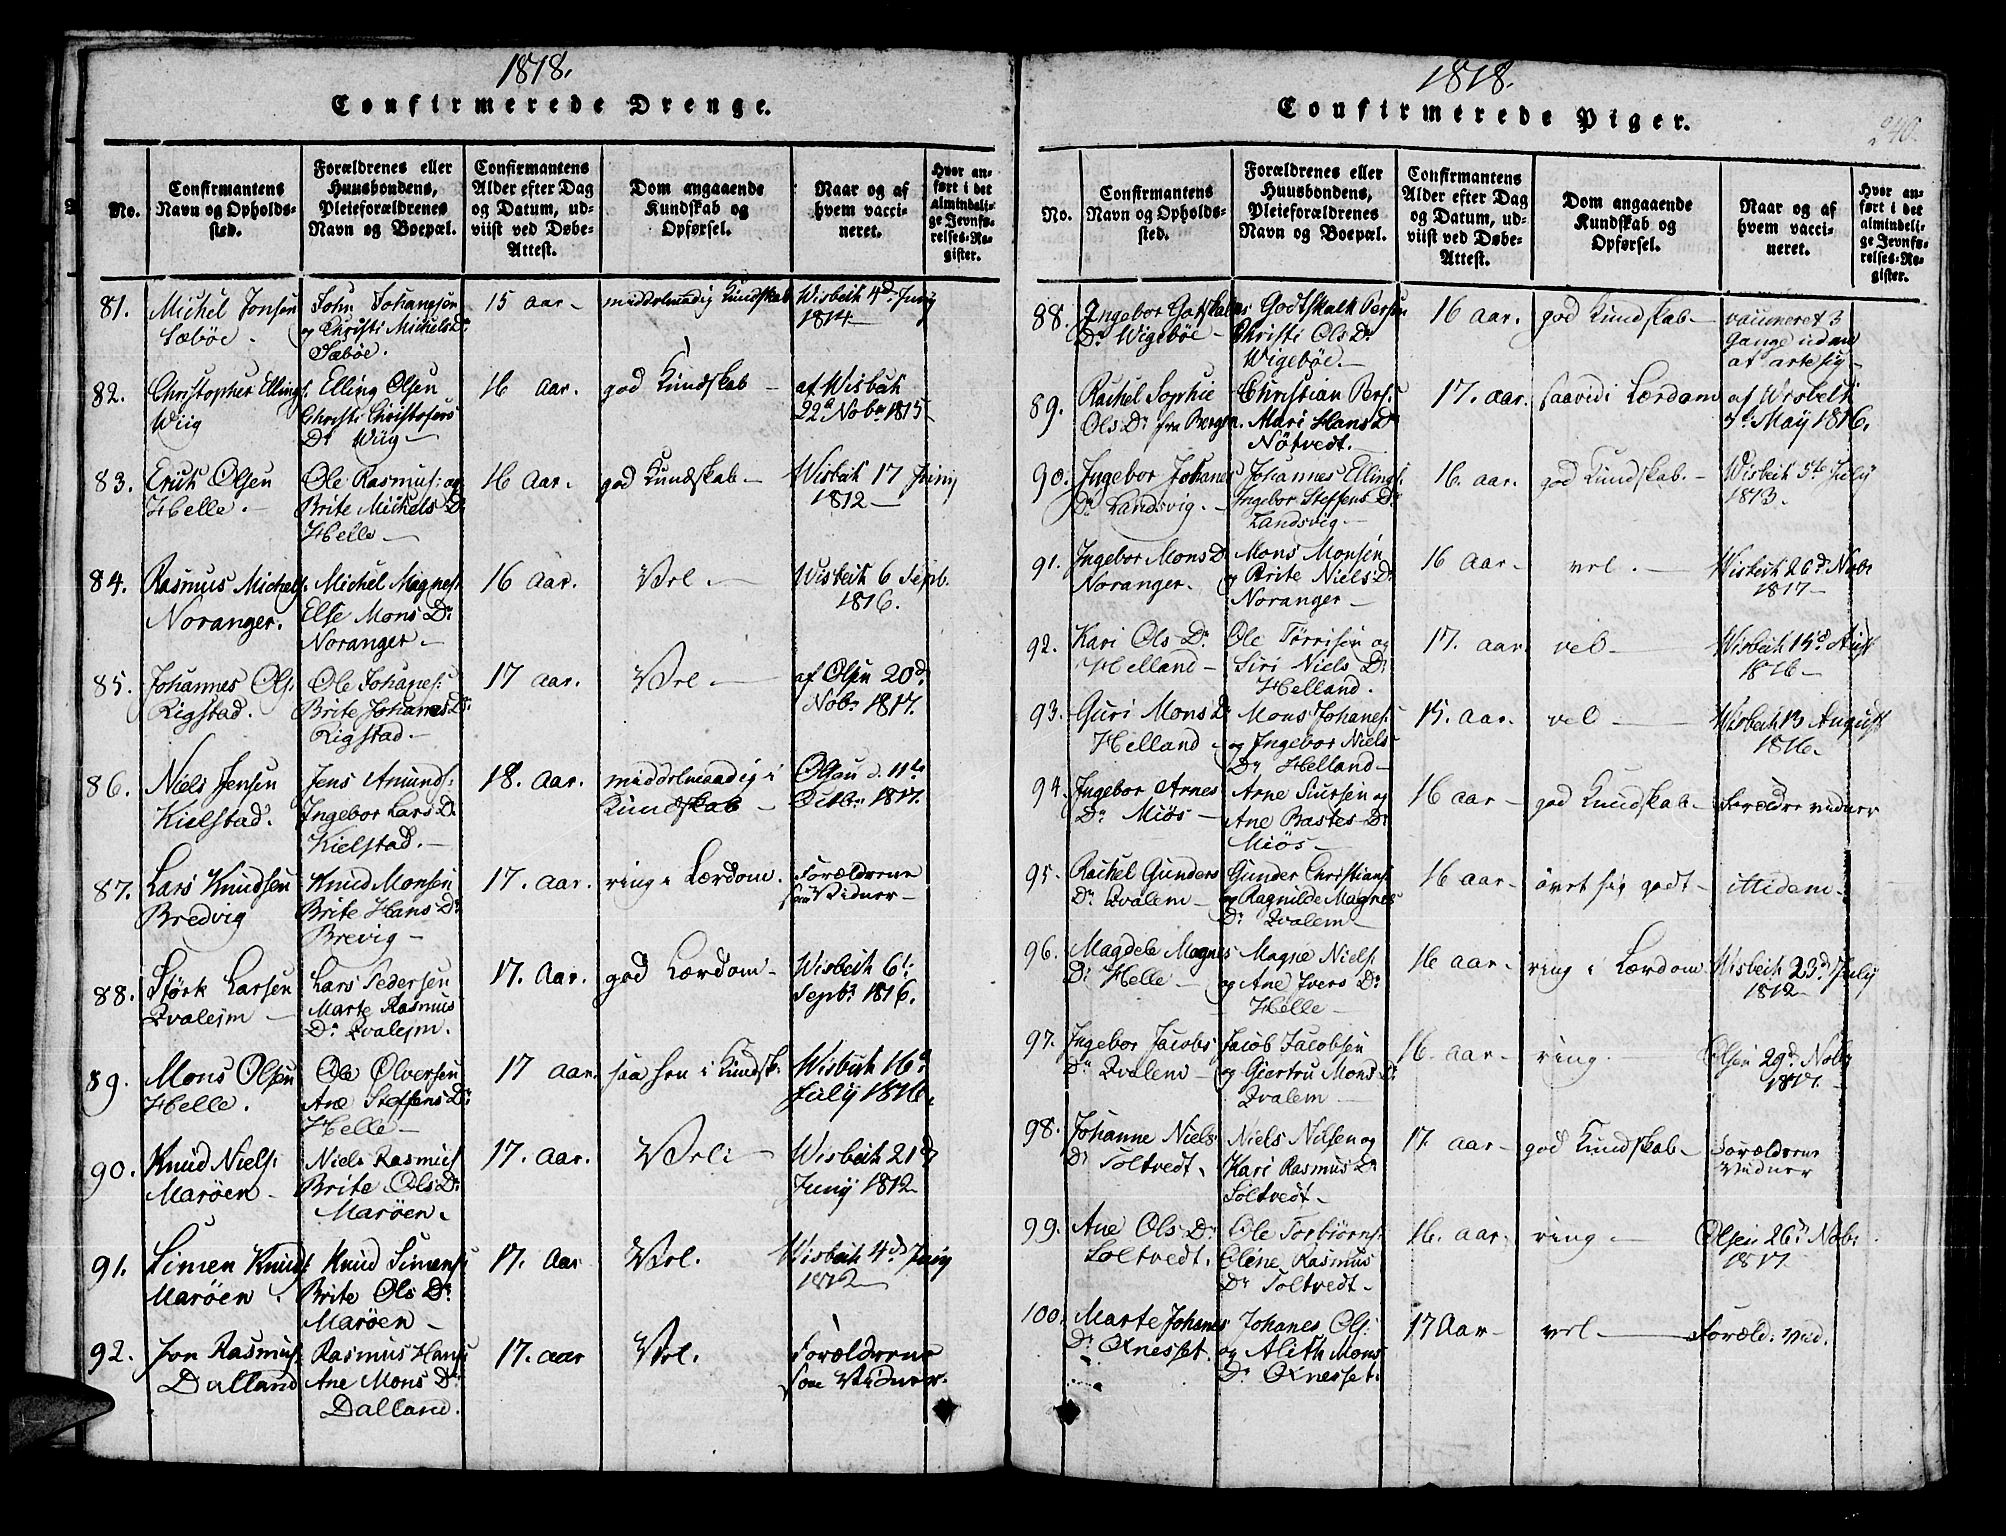 1818.
Confirmerede Drenge.
No.
Confirmantens Navn og Opholds-sted.
Forældrenes eller Huusbondens, Pleieforældrenes Navn og Boepæl.
Confirmantens Alder efter Dag og Datum, ud-viist ved Døbe-Attest.
Dom angaaende Kundskab og Opførsel.
Naar og af hvem vacci-neret.
Hvor an-ført i det almindeli-ge Jevnfø-relses-Re-gister.
81. Michel Jonsen Sæbøe. John Johanesen og Christi Michels Dr Sæbøe. 15 aar - middelmaadig Kundskab Wisbech 4d Juny 1814
82. Christopher Ellings: Wiig Elling Olsen Christi Christofers Dr Wiig 16 aar. god Kundskab af Wisbech 22d Nobr 1815
83. Erich Olsen Helle. Ole Rasmus: og Brite Michels Dr Helle 16 Aar. god Kundskab Wisbech 17 Juny 1812
84. Rasmus Michels: Noranger. Michel Magnes: Else Mons Dr Noranger 16 Aar. Vel. Wisbech 6 Sepb. 1816.
85. Johannes Ols: Rigstad. Ole Johanes: Brite Johanes Dr Rigstad. 17 aar. Vel. af Olsen 20d Nobr 1817.
86. Niels Jensen Kielstad. Jens Amunds: Ingebor Lars Dr Kielstad. 18. Aar. middelmaadig i Kundskab Olsen d. 11te Octbr 1817.
87. Lars Knudsen Bredvig Knud Monsen Brite Hans Dr Brevig 17. aar. ring i Lærdom. Forælderne som Vidner
88. Størk Larsen Qvalejm Lars Pedersen Marte Rasmus Dr Qvalejm. 17. Aar. god Lærdom Wisbech 6t Septbr 1816.
89. Mons Olsen Helle. Ole Olversen Ane Steffens Dr Helle 17 Aar. saa hen i Kundsk: Wisbech 16d July 1816.
90. Knud Niels: Marøen Niels Rasmus: Brite Ols Dr Marøen. 17. Aar. Vel: Wisbech 21d Juny 1812
91. Simen Knuds: Marøen. Knud Simens: Brite Ols Dr Marøen 17. Aar Vel. Wisbech 4d Juny 1812
92. Jon Rasmus: Dalland Rasmus Hans: Ane Mons Dr Dalland. 17. aar Vel. Forælderne som Vidner.
1818.
Confirmerede Piger.
240.
No.
Confirmantens Navn og Opholds-sted.
Forældrenes eller Huusbondens, Pleieforældrenes Navn og Boepæl.
Confirmantens Alder efter Dag og Datum, ud-viist ved Døbe-Attest.
Dom angaaende Kundskab og Opførsel.
Naar og af hvem vacci-neret.
Hvor an-ført i det almindeli-ge Jevnfø-relses-Re-gister.
88. Ingebor Gotskalks Dr Wigebøe Godtskalk Persen Christi Ols Dr Wigebøe 16 Aar. god Kundskab vaccineret 3 Gange uden at arte sig
89. Rachel Sophie Ols Dr fra Bergen. Christian Pers: Mari Hans Dr Nøtvedt. 17. Aar. saavel i Lærdom af Wisbech 7d May 1816.
90. Ingebor Johanes Dr Landsvig. Johannes Ellings: Ingebor Steffens Dr Landsvig 16. aar. god Kundskab. Wisbech 5te July 1813.
91. Ingebor Mons Dr Noranger. Mons Monsen og Brite Niels Dr Noranger 16 aar. vel. Wisbech 26d Nobr 1817
92. Kari Ols Dr Helland Ole Tørrisen og Siri Niels Dr Helland. 17. aar. vel Wisbech 15d Aust 1816
93. Guri Mons Dr Helland Mons Johanes: og Ingebor Niels Dr Helland 15. Aar. vel Wisbech 13 August 1816.
94. Ingebor Arnes Dr Miøs Arne Siursen og Ane Bastes Dr Miøs 16 aar god Kundskab Forældre vidner
95. Rachel Gunders Dr Qvalem Gunder Christians: og Ragnilde Magnes Dr Qvalem 16 aar øvet sig godt ittidem
96. Magdele Magnes Dr Helle Magne Niels: og Ane Ivers Dr Helle 16 aar ring i Lærdom Wisbech 23d July 1812
97. Ingebor Jacobs Dr Qvalem Jacob Jacobsen og Giertru Mons Dr Qvalem 16. aar ring. Olsen 29d Nobr 1817.
98. Johanne Niels Dr Soltvedt. Niels Nilsen og Kari Rasmus Dr Soltvedt 17. aar god Kundskab Forælderne Vidner
99. Ane Ols Dr Soltvedt. Ole Torbiørns: Eline Rasmus Dr Soltvedt 16. aar. ring. Olsen 26d Nobr 1817.
100. Marte Johanes Dr Oxnesset. Johanes Ols: og Alith Mons Dr Oxnesset. 17 Aar vel Foræld: vid.